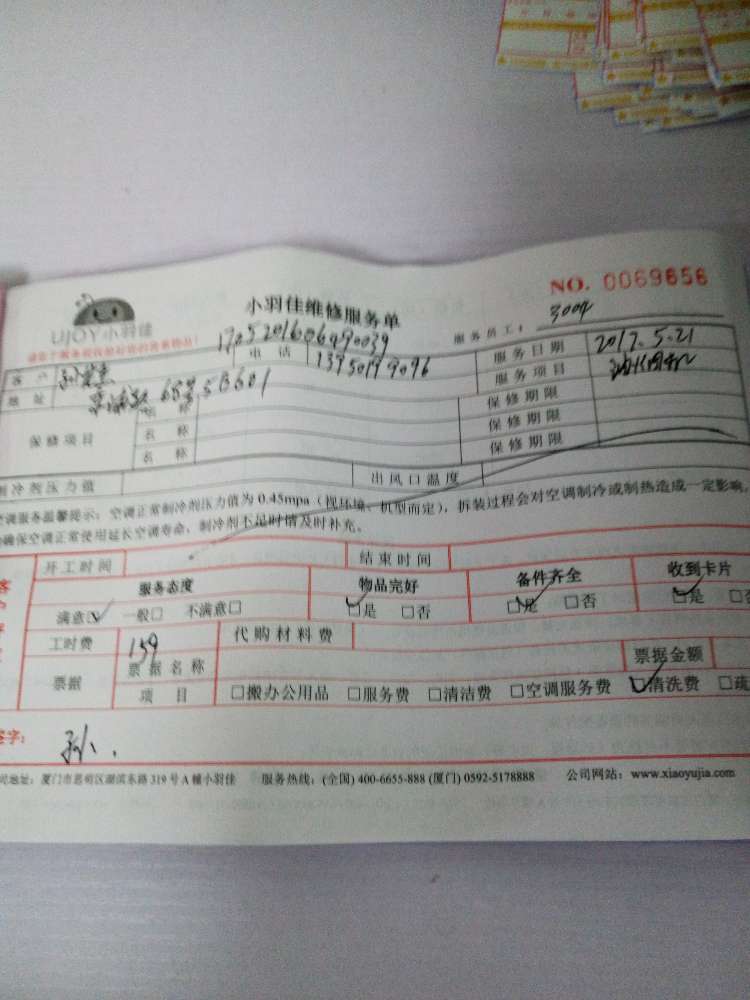 NO. 0069656
UJOY小羽佳
小羽佳维修服务单
服务员工: 3004
1705201606490039
客户 电话 13950199096 服务日期 2017.5.21
地址 685号B601 服务项目
保修项目 名称 保修期限
名称 保修期限
名称 保修期限
制冷剂压力值 出风口温度
空调服务温馨提示: 空调正常制冷剂压力值为 0.45mpa (视环境、机型而定), 拆装过程会对空调制冷或制热造成一定影响,
确保空调正常使用延长空调寿命, 制冷剂不足时请及时补充。
开工时间 结束时间
服务态度 物品完好 备件齐全 收到卡片
满意☑ 一般□ 不满意□ ☑是 □否 ☑是 □否 ☑是 □否
工时费 159 代购材料费
票据 票据名称 票据金额
项目 □搬办公用品 □服务费 □清洁费 □空调服务费 ☑清洗费 □疏
签字: 孙
司地址: 厦门市思明区湖滨东路 319 号 A 幢小羽佳 服务热线: (全国) 400-6655-888 (厦门) 0592-5178888 公司网站: www.xiaoyujia.com